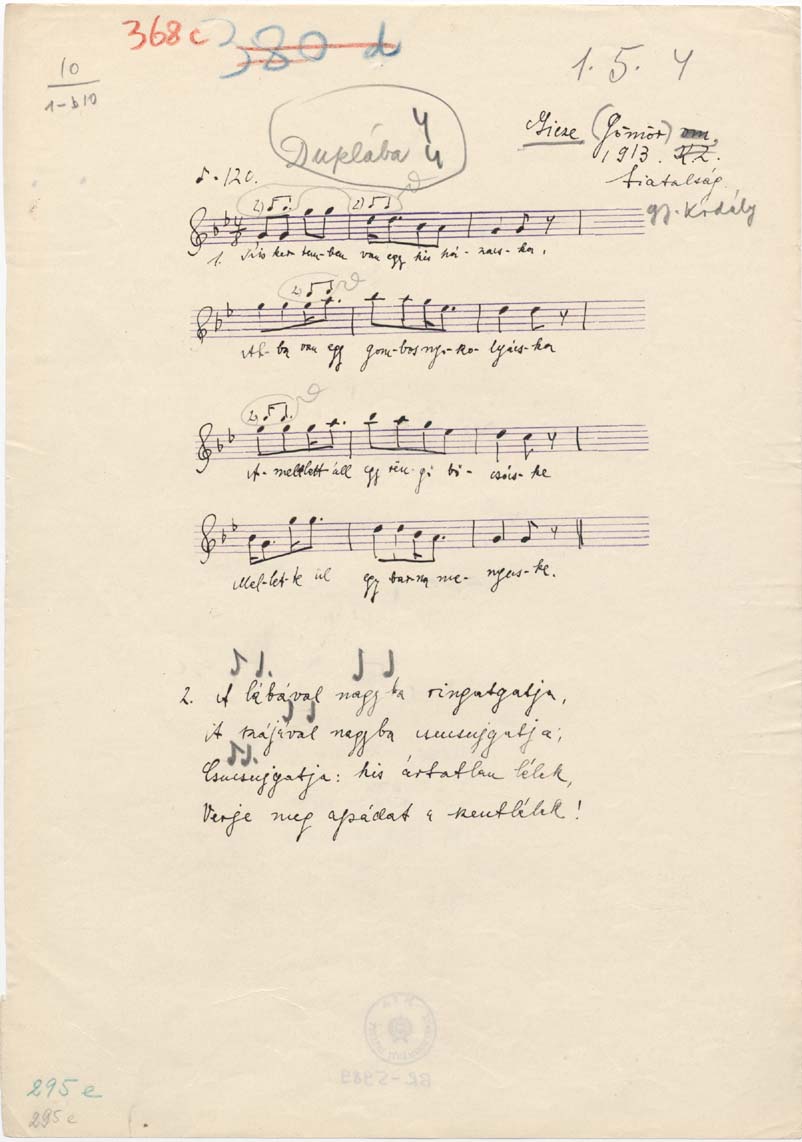 368c
380 d
10
1-b10
1. 5. 4
Gicze (Gömör) vm.
1913.
fiatalság
gy. Kodály
Duplába 4
4
♪=120.
2)
2)
1. Kis ker-tem-ben van egy kis há- nacs-ka,
2)
Ab-ba van egy gom-bos nyi-ko- lyács-ka
2)
A-mellett áll egy rën-gő bö- csőcs-ke
Mel-let-te ül egy bar-na me- nyecs-ke.
2. A lábával nagyba ringatgatja,
A szájával nagyba csucsujgatja;
Csucsujgatja: kis ártatlan lélek,
Verje meg apádat a szentlélek!
BR-5989
295 e
295 e